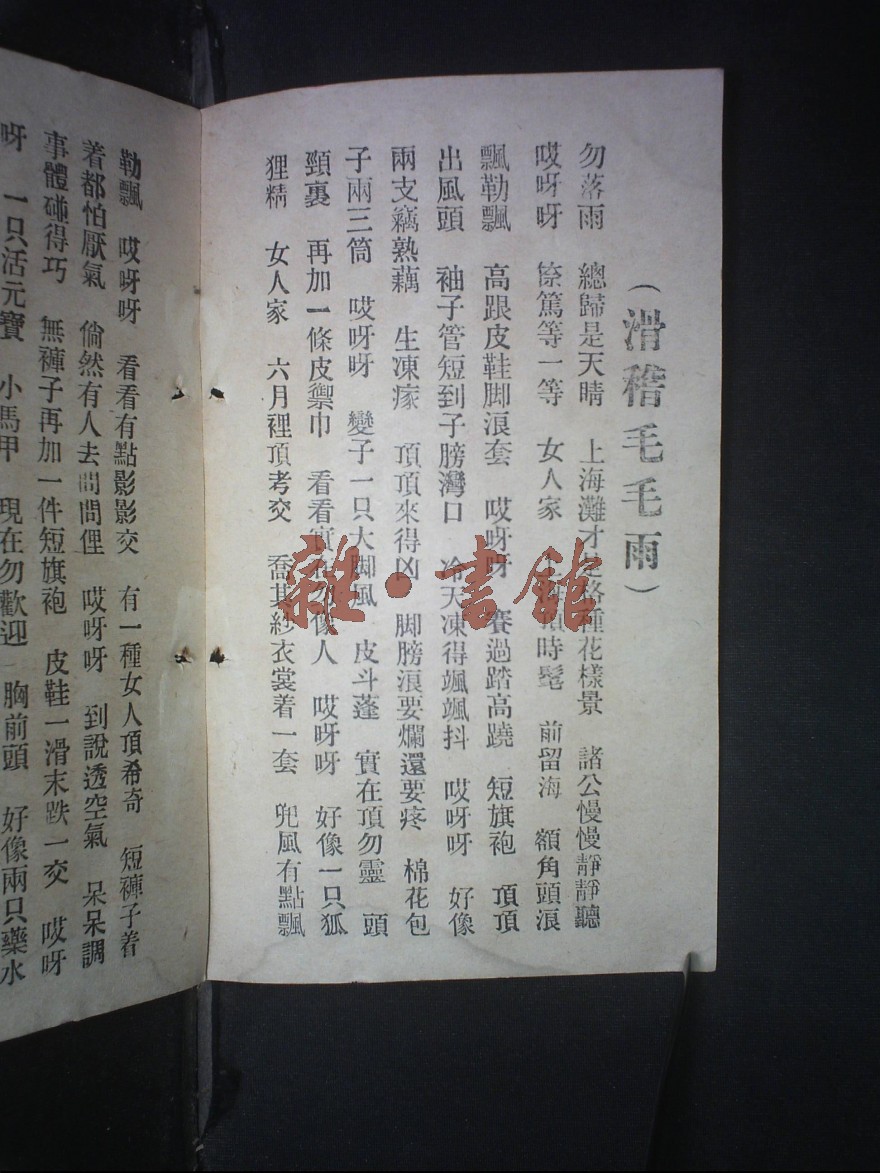 (滑稽毛毛雨)
勿落雨　總歸是天晴　上海灘才是各種花樣景　諸公慢慢靜靜聽
哎呀呀　篤等一等　女人家　頂時髦　前留海　額角頭浪
飄勒飄　高跟皮鞋脚浪套　哎呀呀　賽過踏高蹺　短旗袍　頂頂
出風頭　袖子管短到子膀灣口　冷天凍得颯颯抖　哎呀呀　好像
兩支竊熟藕　生凍瘃　頂頂來得凶　脚膀浪要爛還要疼　棉花包
子兩三筒　哎呀呀　變子一只大脚風　皮斗蓬　實在頂勿靈　頭
頸裏　再加一條皮禦巾　看看實像人　哎呀呀　好像一只狐
狸精　女人家　六月裡頂考交　喬其紗衣裳着一套　兜風有點飄
勒飄　哎呀呀　看看有點影影交　有一種女人頂希奇　短褲子着
着都怕厭氣　倘然有人去問問俚　哎呀呀　到說透空氣　呆呆調
事體碰得巧　無褲子再加一件短旗袍　皮鞋一滑末跌一交　哎呀
呀　一只活元寶　小馬甲　現在勿歡迎　胸前頭　好像兩只藥水
雜·書館